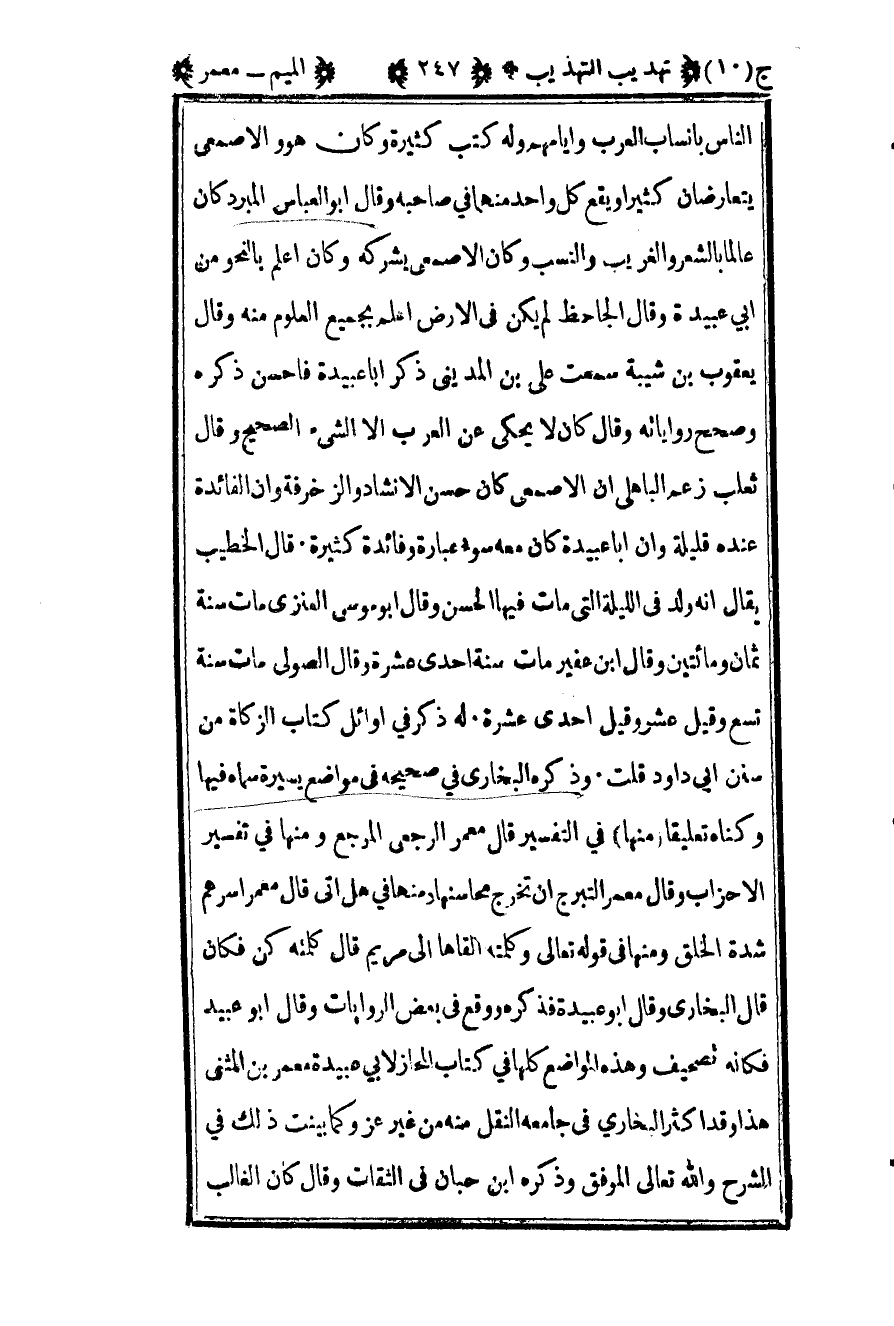 ج (١٠) تهذيب التهذيب ٢٤٧ الميم ــ معمر
الناس بانساب العرب وايامهم وله كتب كثيرة وكان هو و الاصمعى
يتعارضان كثيرا ويقع كل واحد منهما في صاحبه وقال ابو العباس المبرد كان
عالما بالشعر والغريب والنسب وكان الاصمعى يشركه وكان اعلم بالنحو من
ابي عبيدة وقال الجاحظ لم يكن فى الارض اعلم بجميع العلوم منه وقال
يعقوب بن شيبة سمعت على بن المدينى ذكر ابا عبيدة فاحسن ذكره
وصحح رواياته وقال كان لا يحكى عن العرب الا الشىء الصحيح و قال
ثعلب زعم الباهلى ان الاصمعى كان حسن الانشاد والزخرفة وان الفائدة
عنده قليلة وان ابا عبيدة كان معه سوء عبارة وفائدة كثيرة · قال الخطيب
يقال انه ولد فى الليلة التى مات فيها الحسن وقال ابو موسى العنزى مات سنة
ثمان ومائتين وقال ابن عفير مات سنة احدى عشرة وقال الصولى مات سنة
تسع وقيل عشر وقيل احدى عشرة · له ذكر في اوائل كتاب الزكاة من
سنن ابي داود قلت · وذكره البخارى في صحيحه فى مواضع يسيرة سماه فيها
وكناه تعليقا (منها) في التفسير قال معمر الرجعى المرجع و منها في تفسير
الاحزاب وقال معمر التبرج ان تخرج محاسنها ومنها في هل اتى قال معمر اسرهم
شدة الخلق ومنها فى قوله تعالى وكلمته القاها الى مريم قال كلمته كن فكان
قال البخارى وقال ابو عبيدة فذكره ووقع فى بعض الروايات وقال ابو عبيد
فكانه تصحيف وهذه المواضع كلها في كتاب المجاز لابي عبيدة معمر بن المثنى
هذا وقد اكثر البخاري فى جامعه النقل منه من غير عزو كما بينت ذلك في
الشرح والله تعالى الموفق وذكره ابن حبان فى الثقات وقال كان الغالب